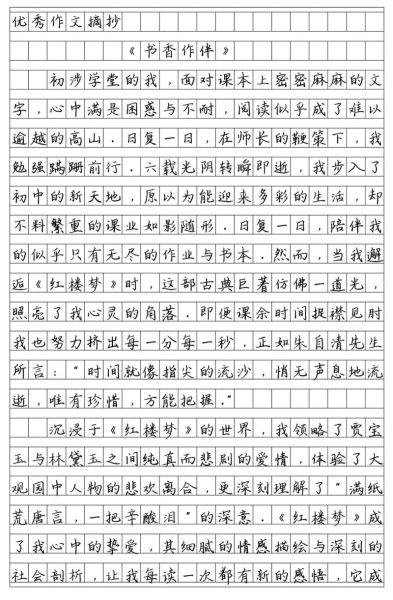 优秀作文摘抄
《书香作伴》
初涉学堂的我，面对课本上密密麻麻的文
字，心中满是困惑与不耐，阅读似乎成了难以
逾越的高山．日复一日，在师长的鞭策下，我
勉强蹒跚前行．六载光阴转瞬即逝，我步入了
初中的新天地，原以为能迎来多彩的生活，却
不料繁重的课业如影随形．日复一日，陪伴我
的似乎只有无尽的作业与书本．然而，当我邂
逅《红楼梦》时，这部古典巨著仿佛一道光，
照亮了我心灵的角落．即便课余时间捉襟见肘
我也努力挤出每一分每一秒，正如朱自清先生
所言："时间就像指尖的流沙，悄无声息地流
逝，唯有珍惜，方能把握．"
沉浸于《红楼梦》的世界，我领略了贾宝
玉与林黛玉之间纯真而悲剧的爱情，体验了大
观园中人物的悲欢离合，更深刻理解了"满纸
荒唐言，一把辛酸泪"的深意．《红楼梦》成
了我心中的挚爱，其细腻的情感描绘与深刻的
社会剖析，让我每读一次都有新的感悟，它成